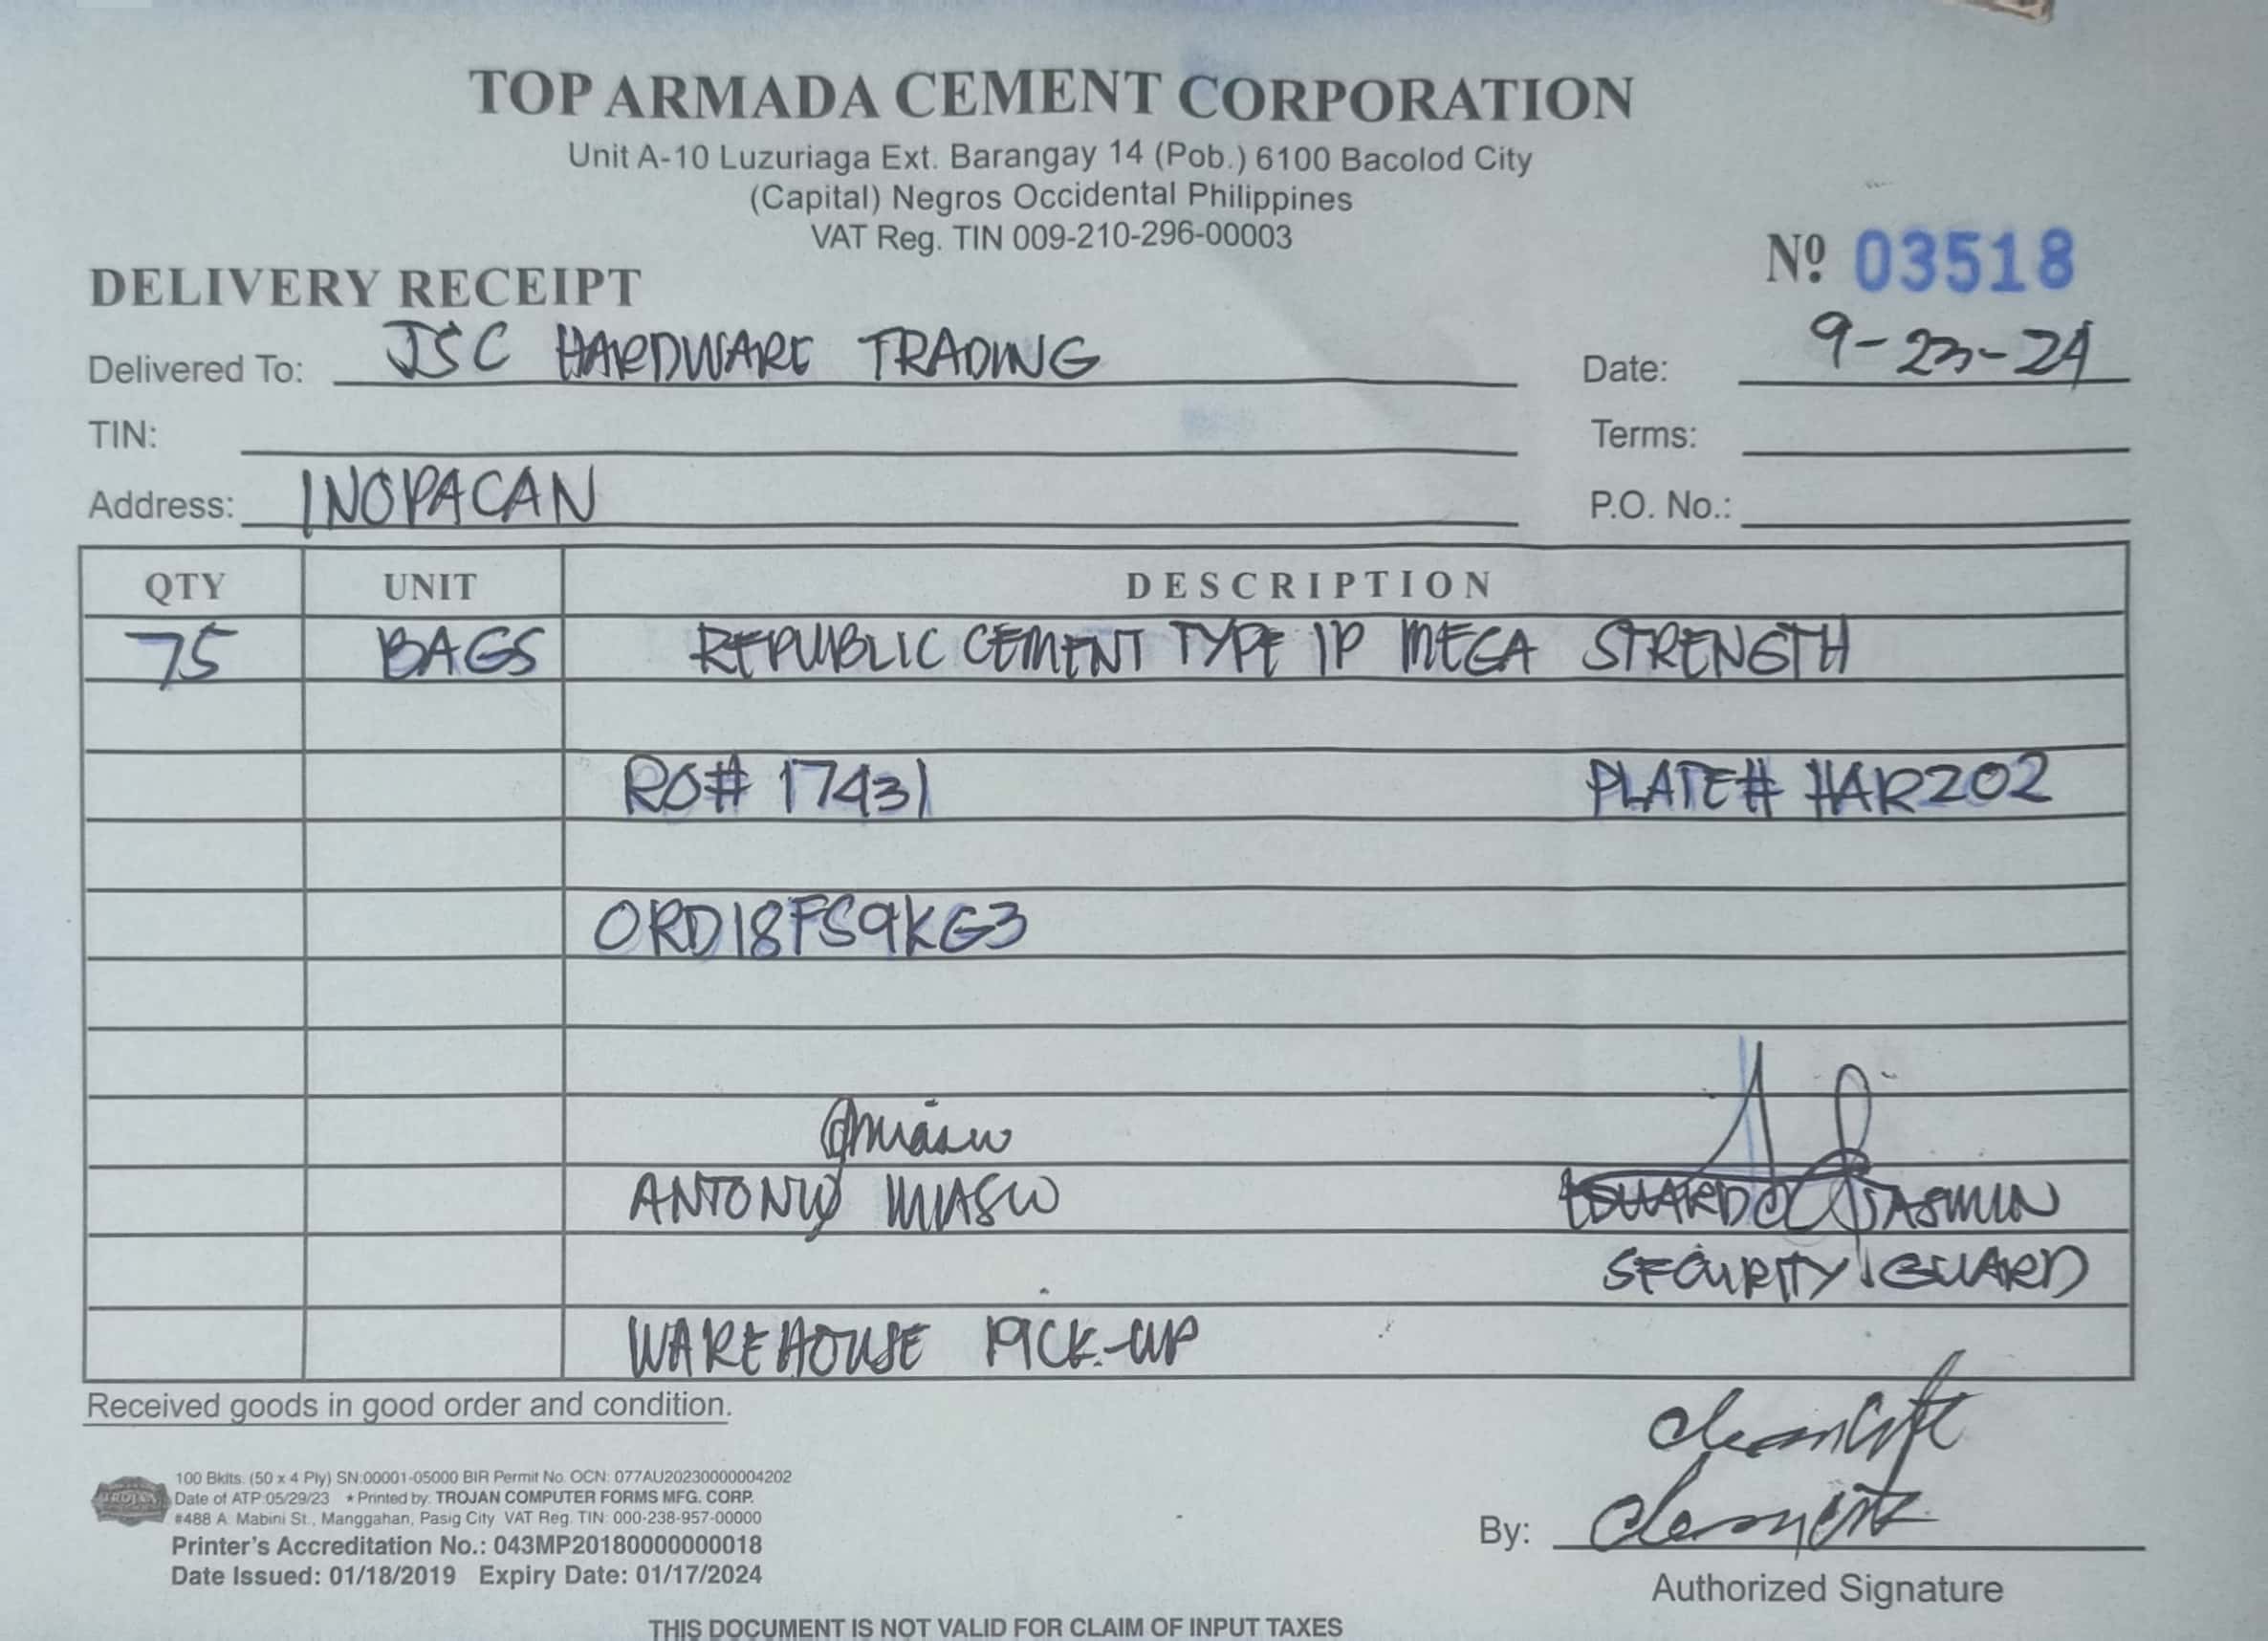 TOP ARMADA CEMENT CORPORATION
Unit A-10 Luzuriaga Ext. Barangay 14 (Pob.) 6100 Bacolod City
(Capital) Negros Occidental Philippines
VAT Reg. TIN 009-210-296-00003
Nº 03518
DELIVERY RECEIPT
Delivered To: JSC HARDWARE TRADING Date: 9-23-24
TIN: Terms:
Address: INOPACAN P.O. No.:
QTY UNIT DESCRIPTION
75 BAGS REPUBLIC CEMENT TYPE 1P MEGA STRENGTH
RO# 17431 PLATE# HAR202
ORD18FS9KG3
ANTONIO JASMIN
SECURITY GUARD
WAREHOUSE PICK-UP
Received goods in good order and condition.
TROJAN
100 Bklts. (50 x 4 Ply) SN:00001-05000 BIR Permit No. OCN: 077AU20230000004202
Date of ATP:05/29/23 ★ Printed by: TROJAN COMPUTER FORMS MFG. CORP.
#488 A. Mabini St., Manggahan, Pasig City VAT Reg. TIN: 000-238-957-00000
Printer's Accreditation No.: 043MP20180000000018
Date Issued: 01/18/2019 Expiry Date: 01/17/2024
By:
Authorized Signature
THIS DOCUMENT IS NOT VALID FOR CLAIM OF INPUT TAXES